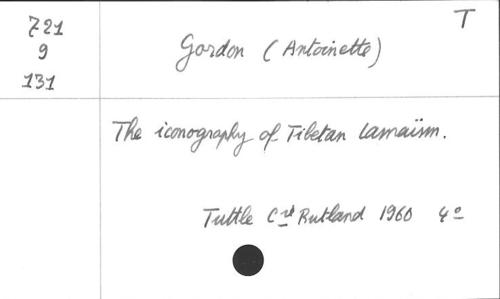 T
721
9
131
Gordon (Antoinette)
The iconography of Tibetan lamaïsm.
Tuttle Cie Rutland 1960 4º